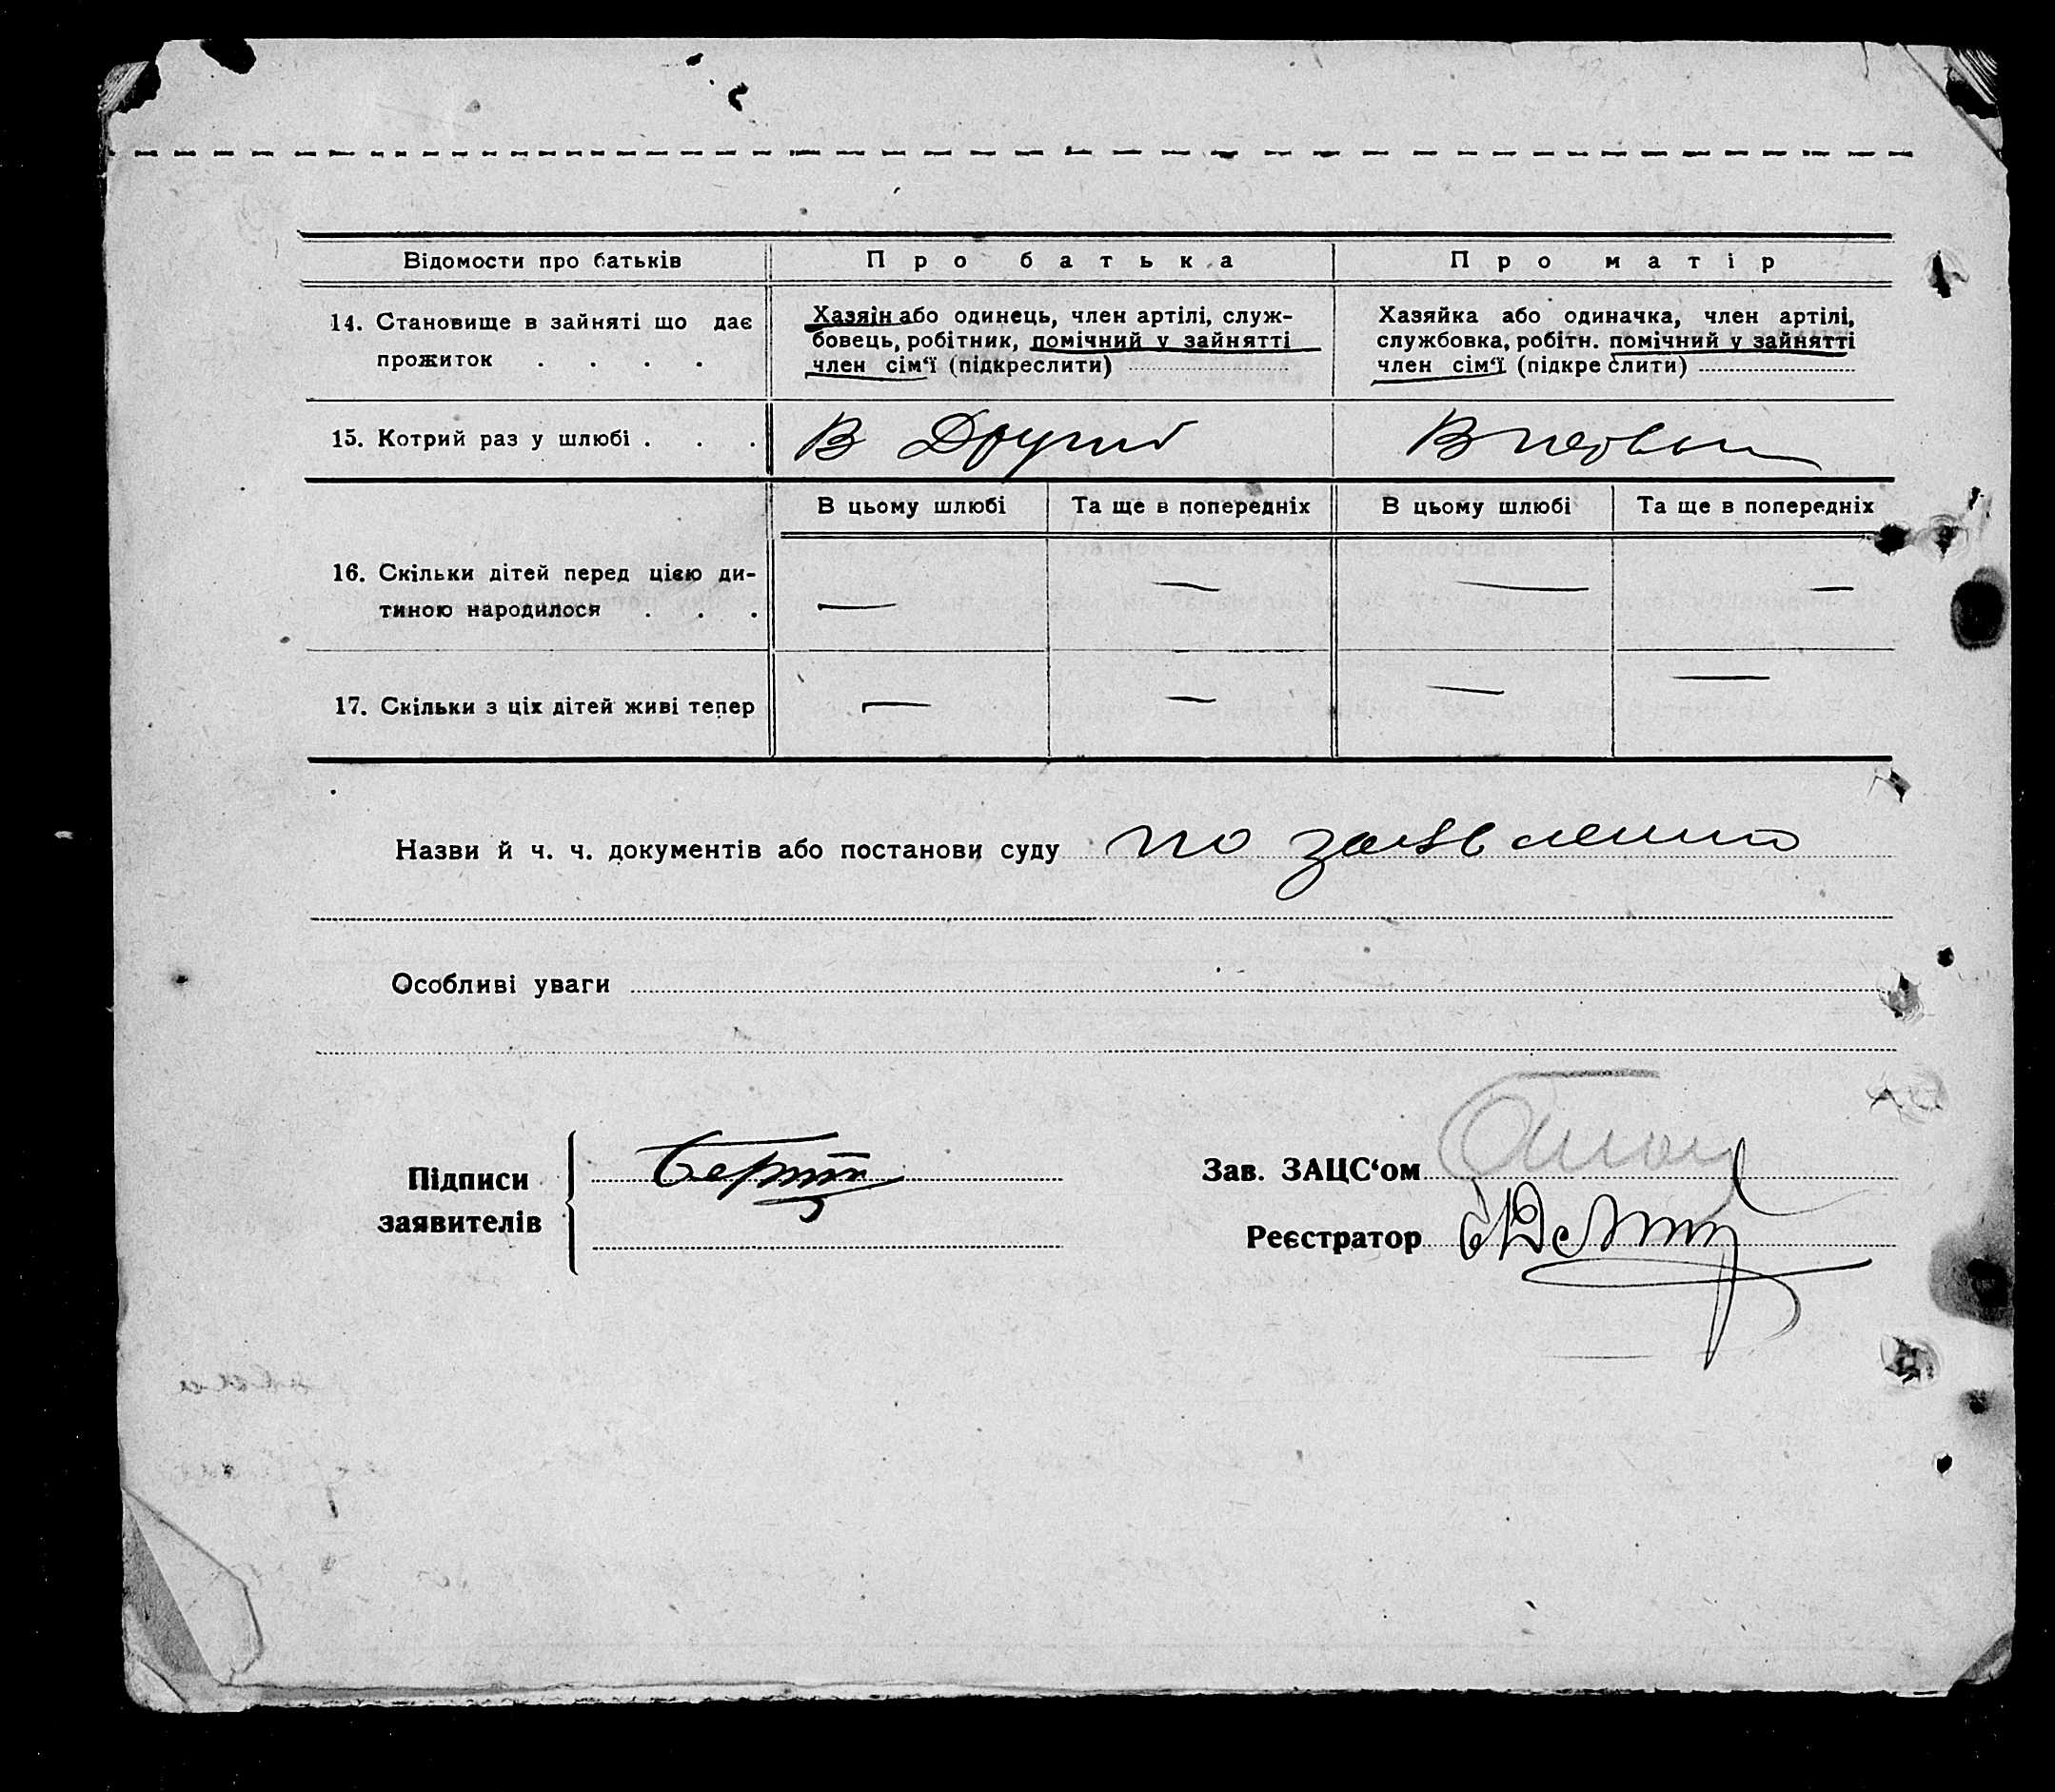 Відомости про батьків Про батька Про матір
14. Становище в зайняті що дає
прожиток . . . .
Хазяін або одинець, член артілі, служ-
бовець, робітник, помічний у зайнятті
член сім‘ї (підкреслити)
Хазяйка або одиначка, член артілі,
службовка, робітн. помічний у зайнятті
член сім‘ї (підкреслити)
15. Котрий раз у шлюбі . . . В Другий В первый
В цьому шлюбі Та ще в попередніх В цьому шлюбі Та ще в попередніх
16. Скільки дітей перед цією ди-
тиною народилося . . . — — — —
17. Скільки з ціх дітей живі тепер — — — —
Назви й ч. ч. документів або постанови суду по заявлению
Особливі уваги
Підписи
заявителів
Зав. ЗАЦС‘ом
Реєстратор